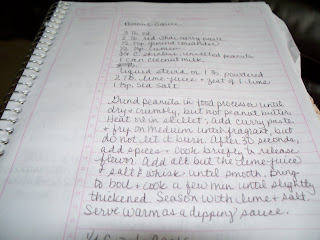 Peanut Sauce
3 Tb oil
2 Tb. red thai curry paste
½ tsp. ground coriander
½ tsp. cumin
¾ C. skinless unsalted peanuts
1 can coconut milk
liquid stevia or 1 tb. powdered
2 Tb. lime juice + zest of 1 lime
1 tsp. sea salt
Grind peanuts in food processor until
dry + crumbly, but not peanut butter.
Heat oil in skillet, add curry paste
+ fry on medium until fragrant, but
do not let it burn. After 30 seconds,
add spices + cook briefly to release
flavor. Add all but the lime juice
+ salt + whisk until smooth. Bring
to boil + cook a few min until slightly
thickened. Season with lime + salt.
Serve warm as a dipping sauce.